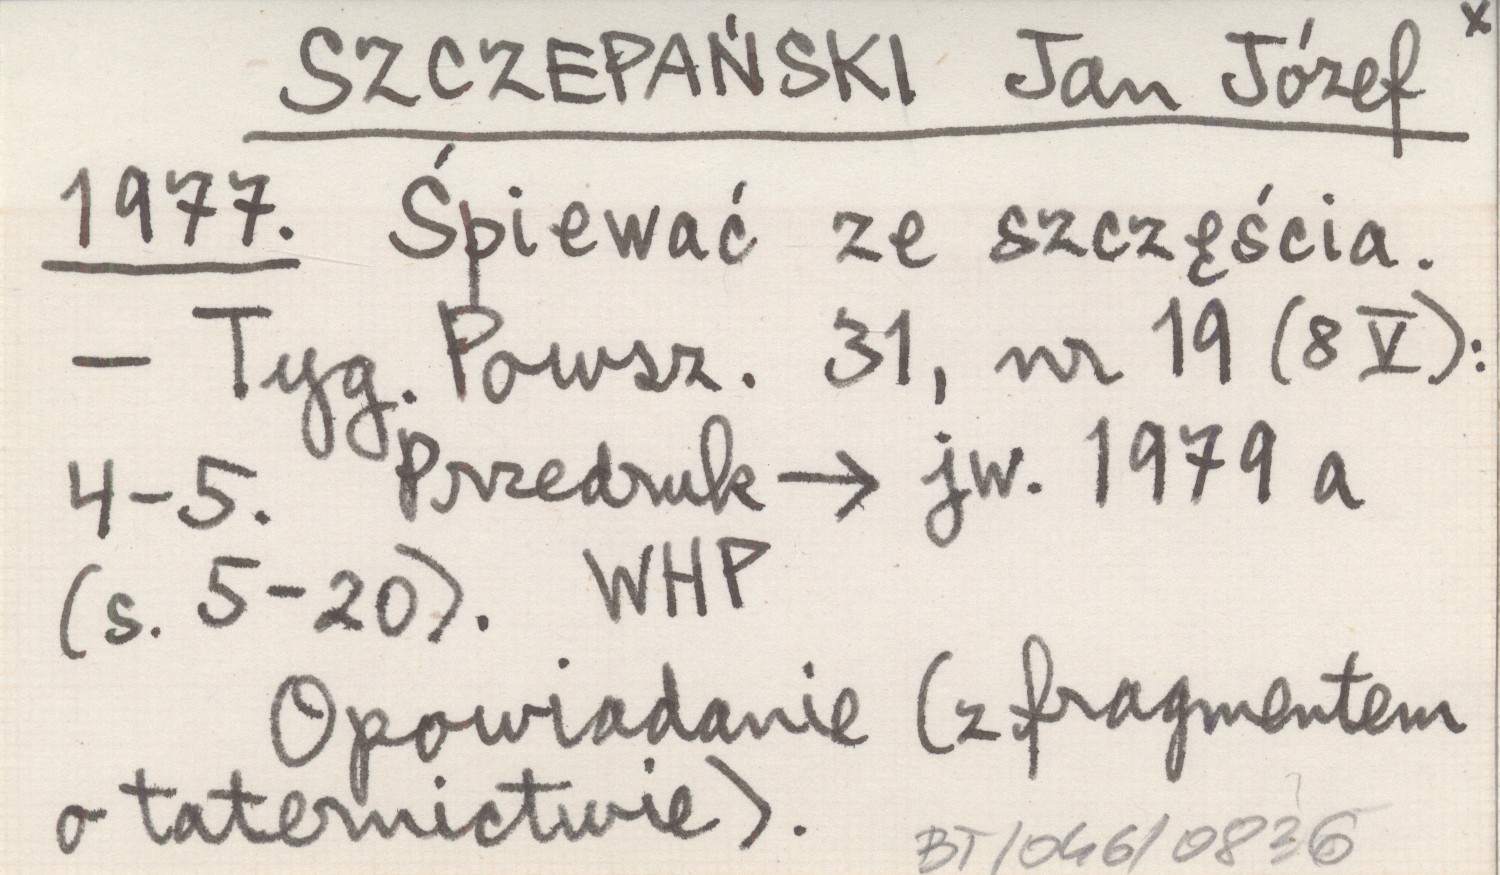 SZCZEPAŃSKI Jan Józef x
1977. Śpiewać ze szczęścia.
– Tyg. Powsz. 31, nr 19 (8 V):
4–5. Przedruk → jw. 1979 a
(s. 5–20). WHP
Opowiadanie (z fragmentem
o taternictwie).
BT/046/0836